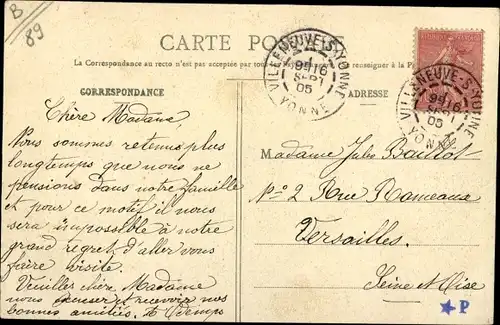 B
89
CARTE POSTALE
La Correspondance au recto n'est pas acceptée par tous renseigner à la P
CORRESPONDANCE
ADRESSE
VILLENEUVE-S-YONNE
SEPT
05
YONNE
VILLENEUVE-S-YONNE
SEPT
05
YONNE
Chère Madame,
Nous sommes retenus plus
longtemps que nous ne
pensions dans notre famille
et pour ce motif il nous
sera impossible à notre
grand regret d'aller vous
faire visite.
Veuillez chère Madame
nous excuser et recevoir nos
bonnes amitiés.
Madame Jules
No 2 Rue Rameaux
Versailles.
Seine et Oise
★P